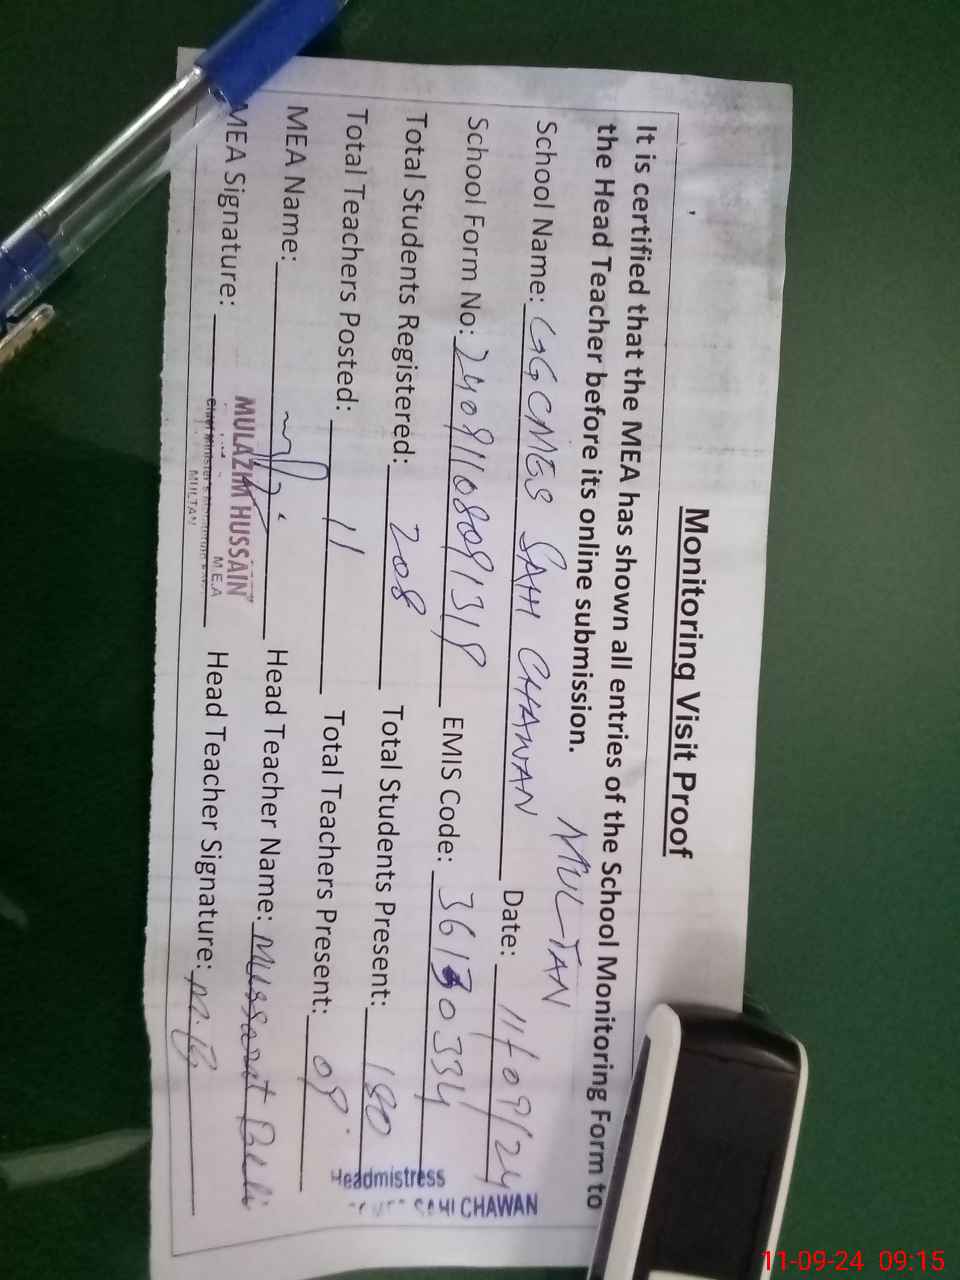 Monitoring Visit Proof
It is certified that the MEA has shown all entries of the School Monitoring Form to
the Head Teacher before its online submission.
MULTAN
School Name: GGCMES SAHI CHAWAN Date: 11/09/24
School Form No: EMIS Code: 36130334
Total Students Registered: 208 Total Students Present: 180
Total Teachers Posted: 11 Total Teachers Present: 09
Headmistress
SAHI CHAWAN
MEA Name: Head Teacher Name: Mussarat
MEA Signature: Head Teacher Signature:
MULAZIM HUSSAIN
M.E.A
MULTAN
11-09-24 09:15